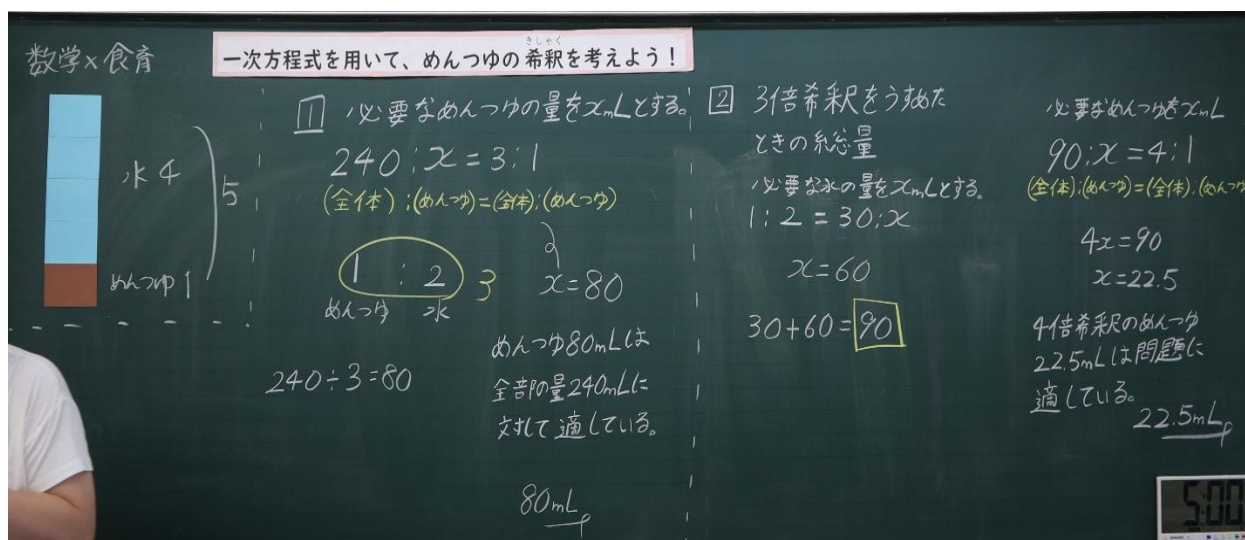 数学×食育
きしゃく
一次方程式を用いて、めんつゆの希釈を考えよう！
水4
5
めんつゆ1
1 必要なめんつゆの量をxmLとする。
240:x=3:1
(全体):(めんつゆ)=(全体):(めんつゆ)
1:2 3
めんつゆ 水
x=80
240÷3=80
めんつゆ80mLは
全部の量240mLに
対して適している。
80mL
2 3倍希釈をうすめた
ときの総量
必要な水の量をxmLとする。
1:2=30:x
x=60
30+60=90
必要なめんつゆをxmL
90:x=4:1
(全体):(めんつゆ)=(全体):(めんつゆ
4x=90
x=22.5
4倍希釈のめんつゆ
22.5mLは問題に
適している。
22.5mL
5:00